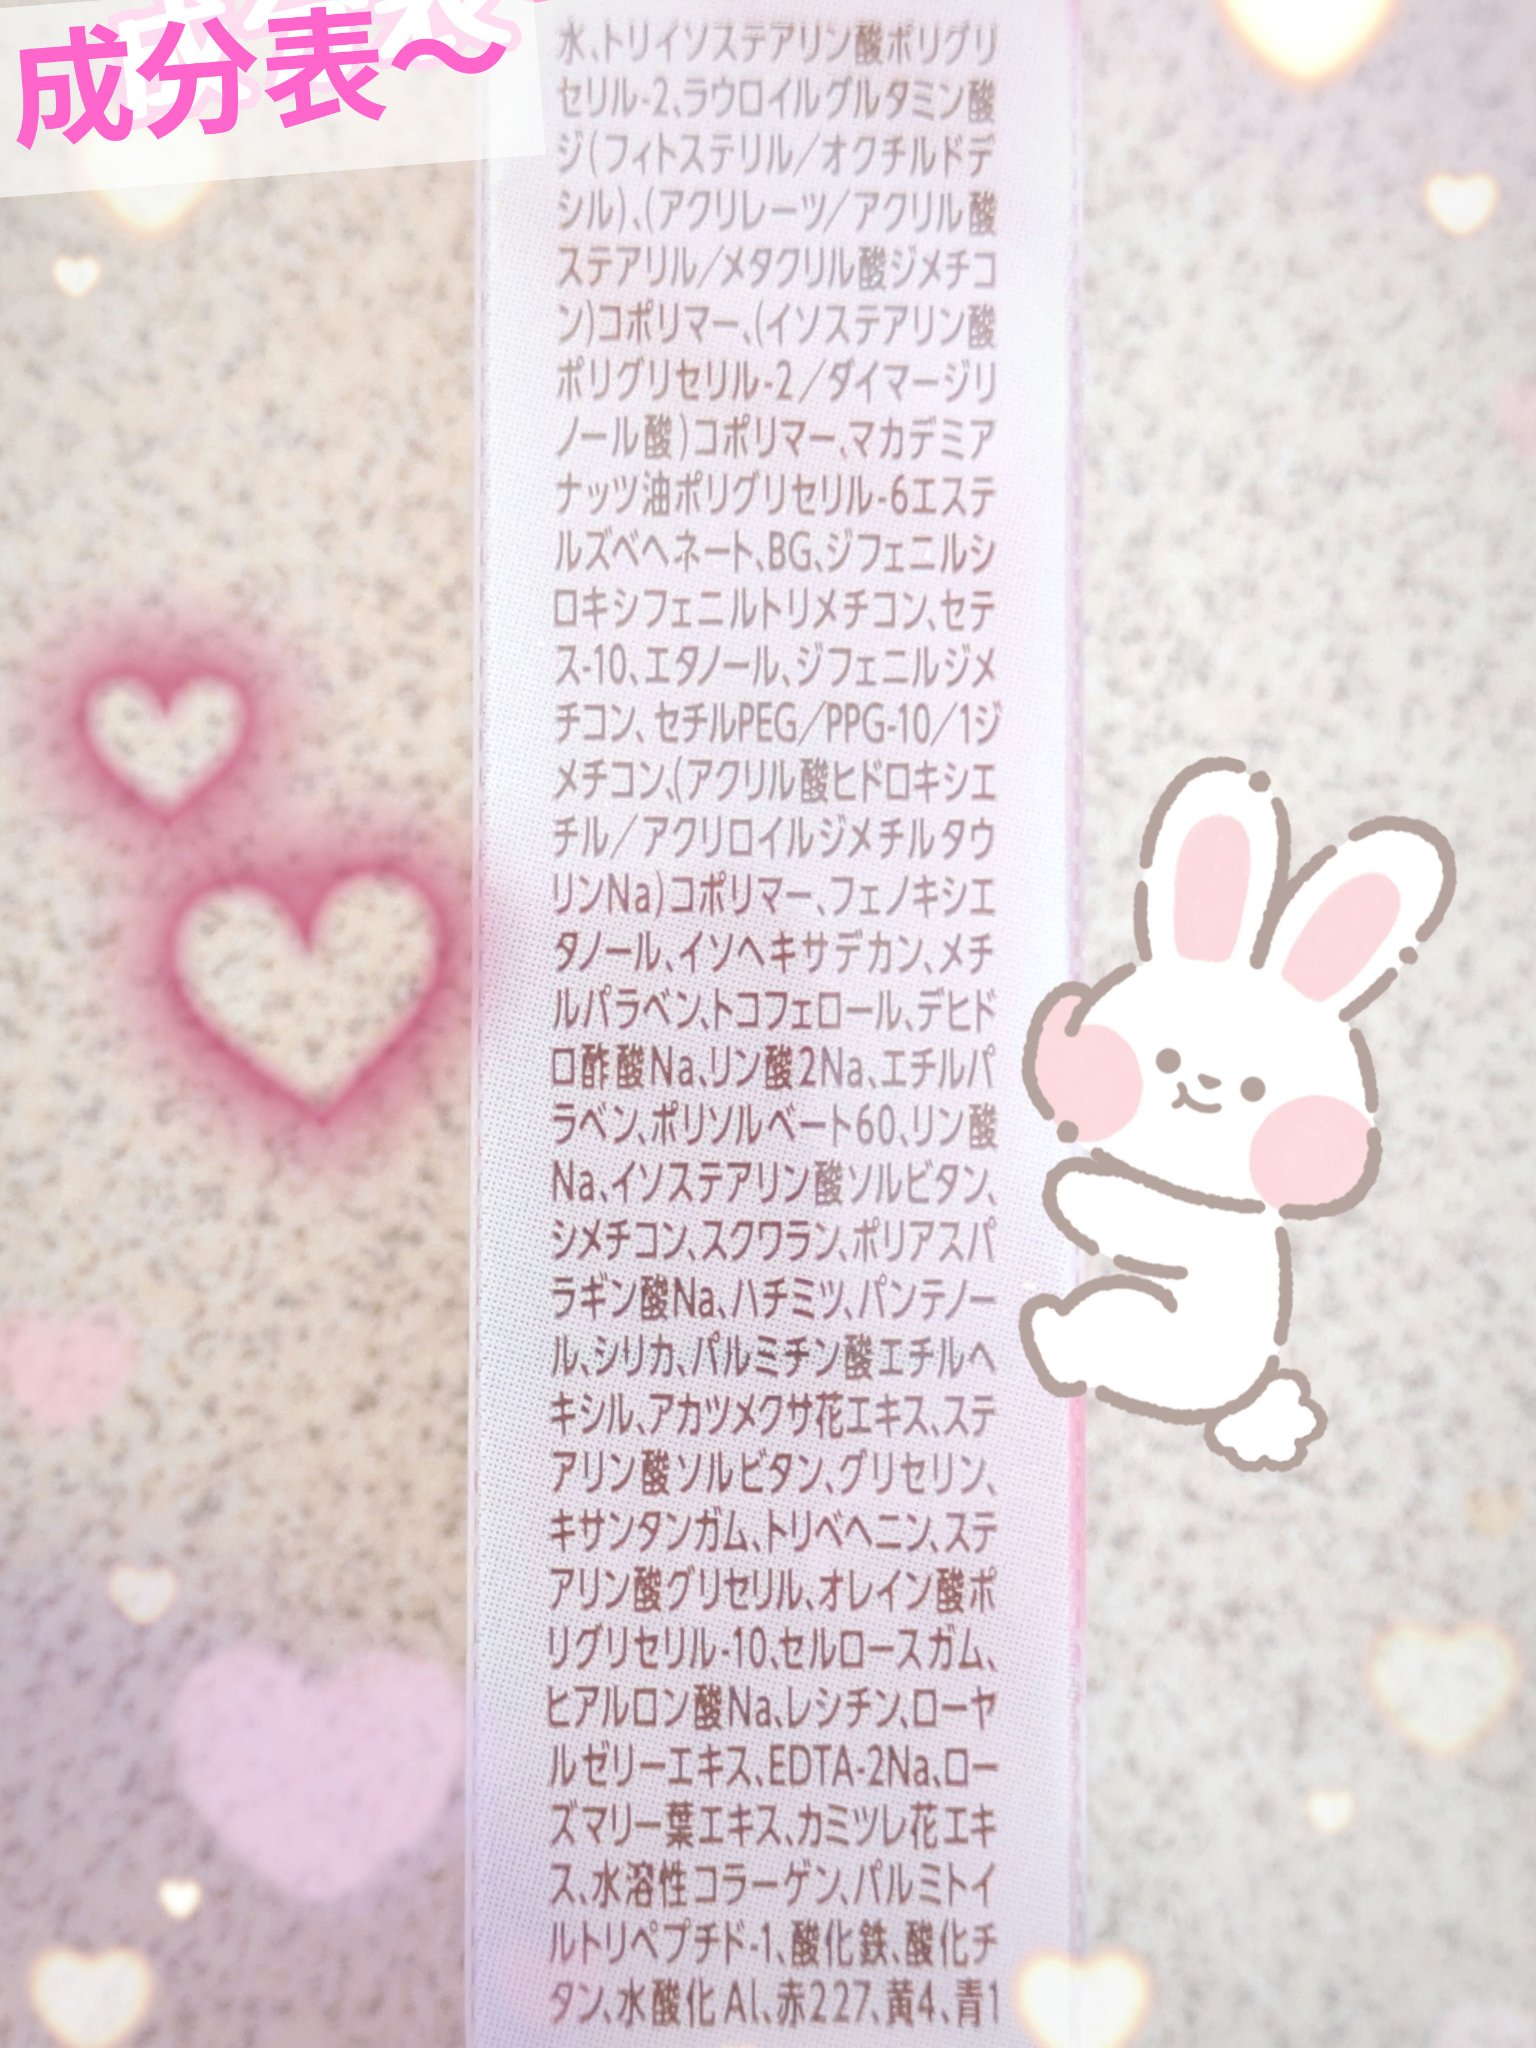 成分表〜
水、トリイソステアリン酸ポリグリ
セリル-2、ラウロイルグルタミン酸
ジ(フィトステリル/オクチルドデ
シル)、(アクリレーツ/アクリル酸
ステアリル/メタクリル酸ジメチコ
ン)コポリマー、(イソステアリン酸
ポリグリセリル-2/ダイマージリ
ノール酸)コポリマー、マカデミア
ナッツ油ポリグリセリル-6エステ
ルズベヘネート、BG、ジフェニルシ
ロキシフェニルトリメチコン、セテ
ス-10、エタノール、ジフェニルジメ
チコン、セチルPEG/PPG-10/1ジ
メチコン、(アクリル酸ヒドロキシエ
チル/アクリロイルジメチルタウ
リンNa)コポリマー、フェノキシエ
タノール、イソヘキサデカン、メチ
ルパラベン、トコフェロール、デヒド
ロ酢酸Na、リン酸2Na、エチルパ
ラベン、ポリソルベート60、リン酸
Na、イソステアリン酸ソルビタン、
シメチコン、スクワラン、ポリアスパ
ラギン酸Na、ハチミツ、パンテノー
ル、シリカ、パルミチン酸エチルヘ
キシル、アカツメクサ花エキス、ステ
アリン酸ソルビタン、グリセリン、
キサンタンガム、トリベヘニン、ステ
アリン酸グリセリル、オレイン酸ポ
リグリセリル-10、セルロースガム、
ヒアルロン酸Na、レシチン、ローヤ
ルゼリーエキス、EDTA-2Na、ロー
ズマリー葉エキス、カミツレ花エキ
ス、水溶性コラーゲン、パルミトイ
ルトリペプチド-1、酸化鉄、酸化チ
タン、水酸化Al、赤227、黄4、青1